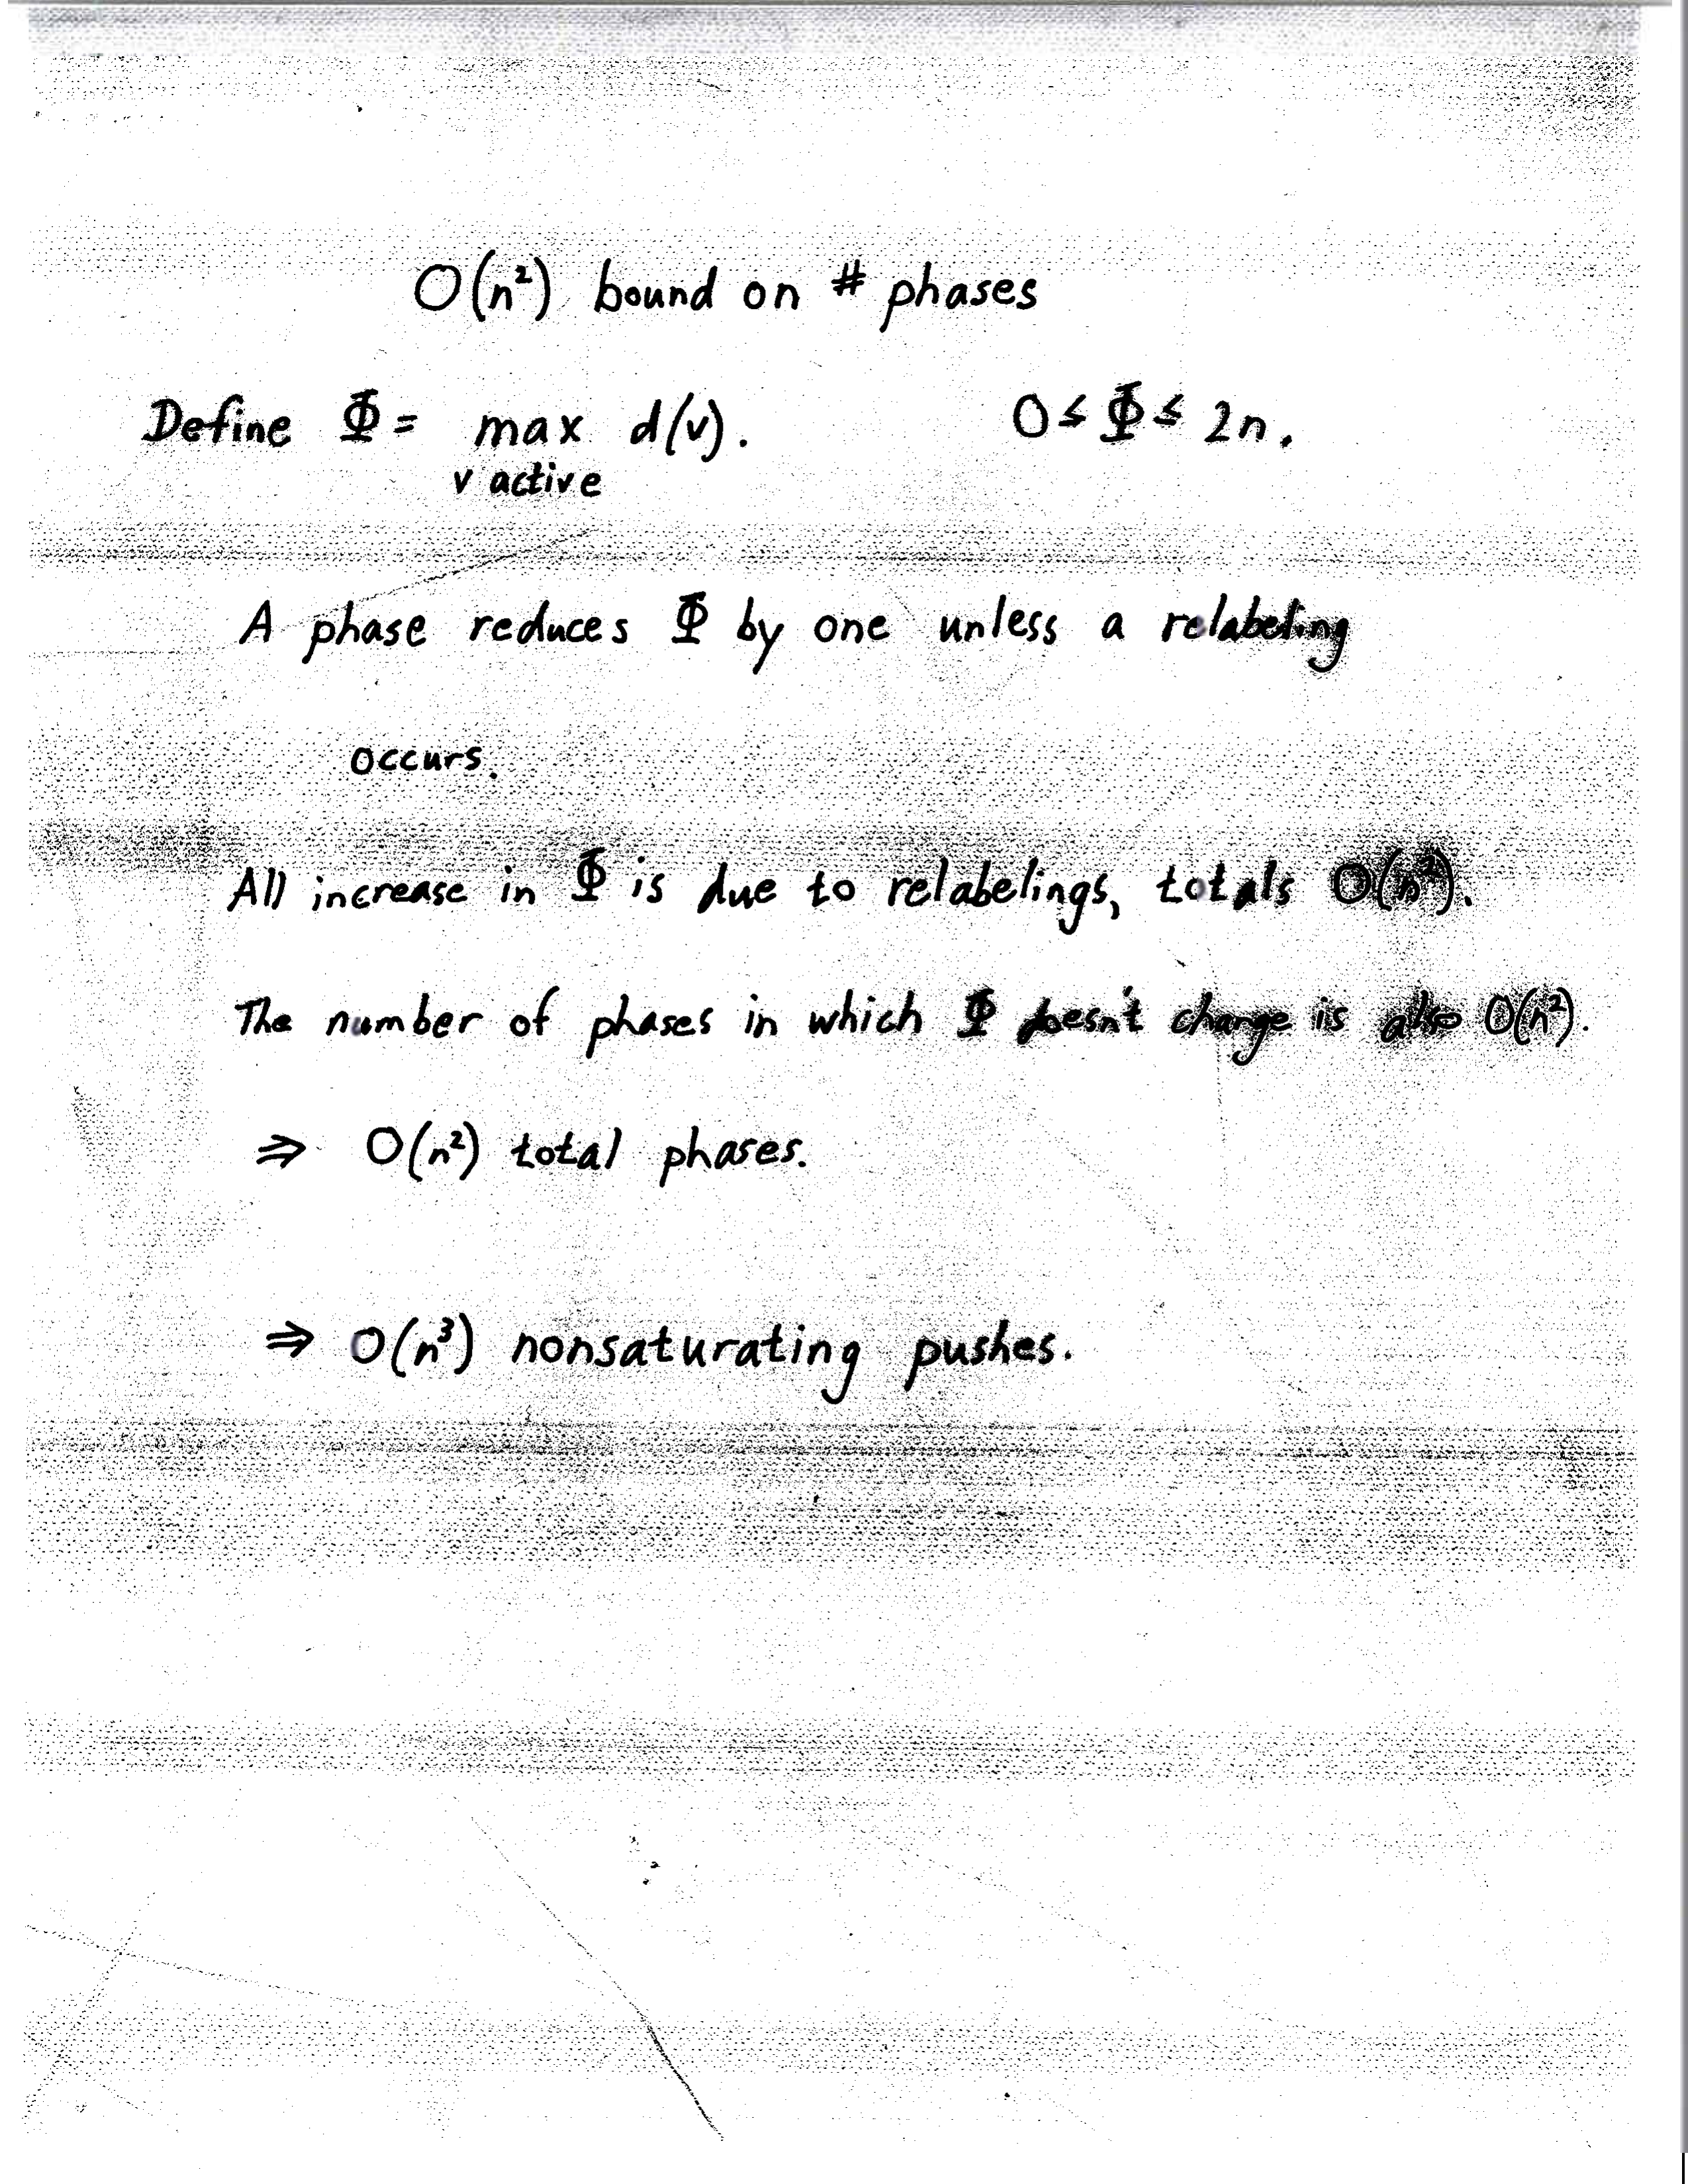 O(n²) bound on # phases
Define Φ = max d(v). 0 ≤ Φ ≤ 2n.
v active
A phase reduces Φ by one unless a relabeling
occurs.
All increase in Φ is due to relabelings, totals O(n²).
The number of phases in which Φ doesn't change is also O(n²).
⇒ O(n²) total phases.
⇒ O(n³) nonsaturating pushes.